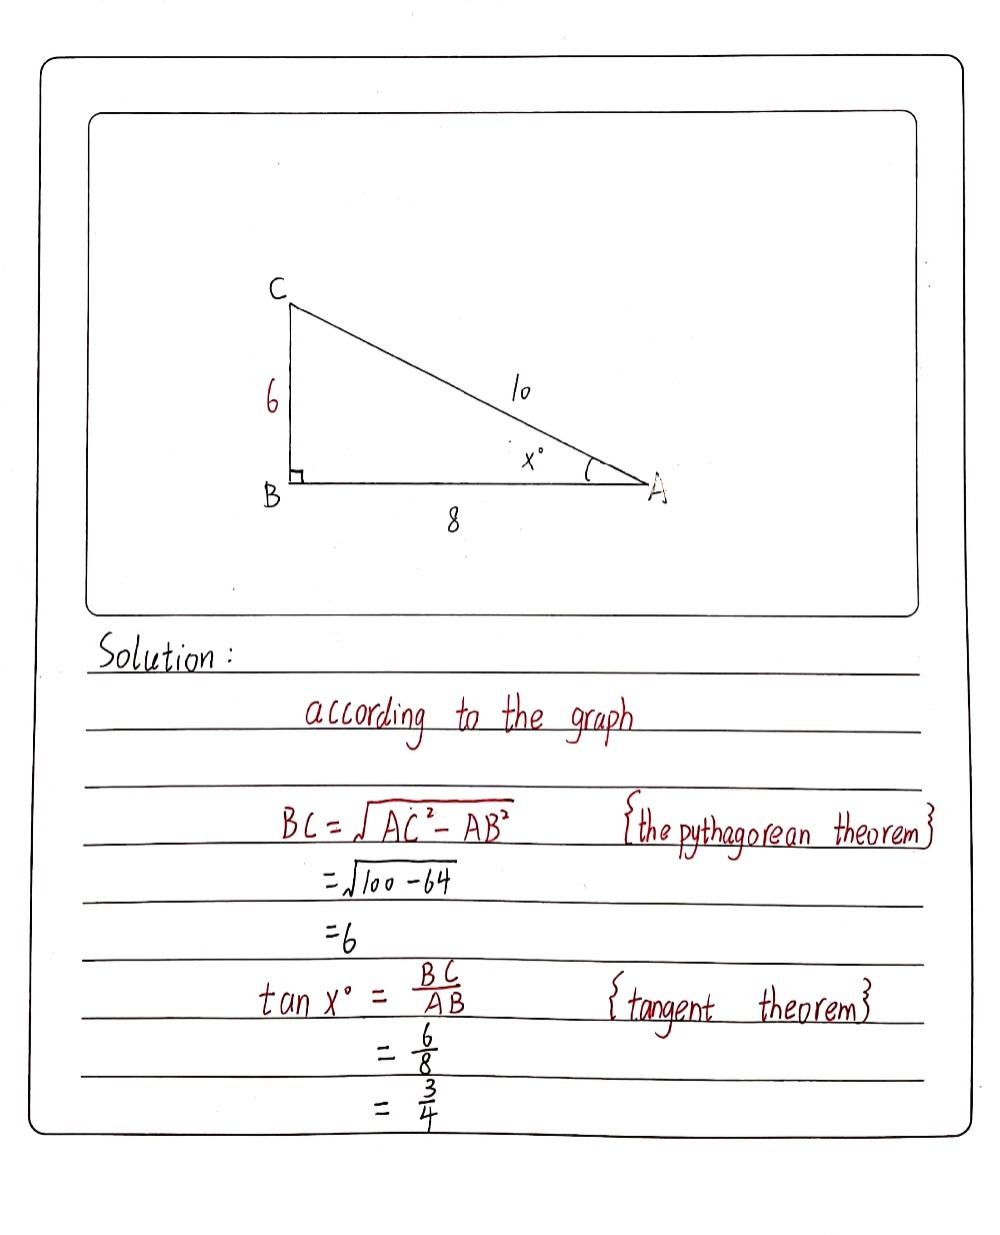 C
6
10
x°
B
A
8
Solution:
according to the graph
BC = √(AC² - AB²) {the pythagorean theorem}
= √(100 - 64)
= 6
tan x° = BC/AB {tangent theorem}
= 6/8
= 3/4